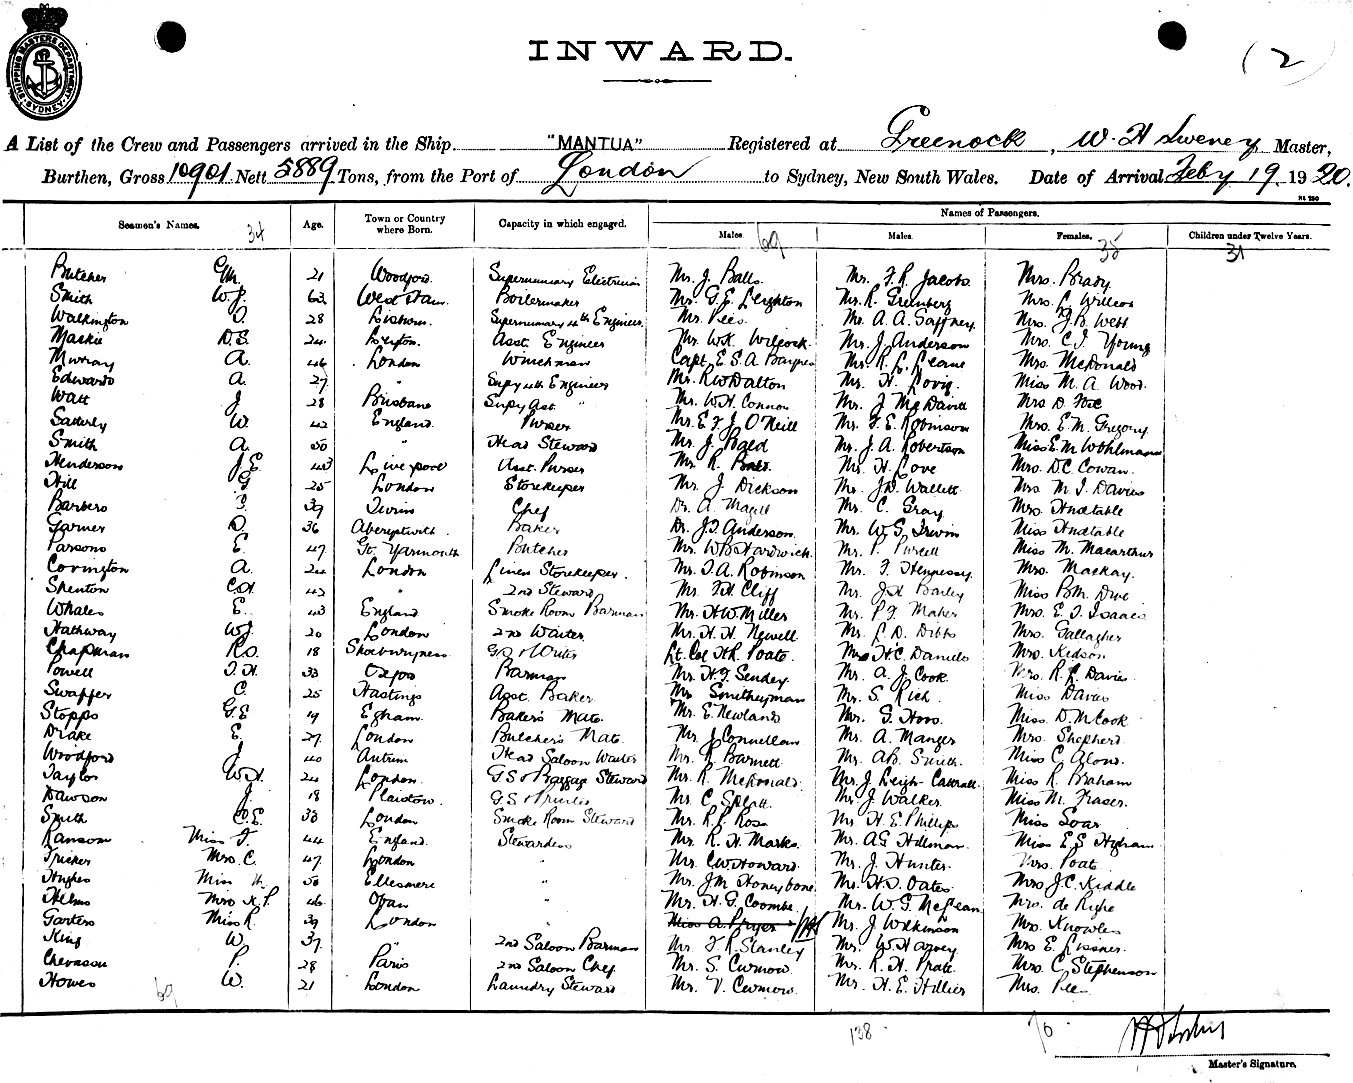 SHIPPING MASTERS DEPARTMENT SYDNEY
INWARD.
(2)
A List of the Crew and Passengers arrived in the Ship "MANTUA" Registered at Greenock, W. H Sweney Master,
Burthen, Gross 10901 Nett 5889 Tons, from the Port of London to Sydney, New South Wales. Date of Arrival Feby 19 1920.
Seamen's Names. Age. Town or Country where Born. Capacity in which engaged. Names of Passengers.
Males. Males. Females. Children under Twelve Years.
34 69 35 31
Butcher G.M. 21 Woodford Supernumary Electrician Mr. J. Balls Mr. F. R. Jacobs Mrs. Brady
Smith W.J. 63 West Ham Boilermaker Mr. G. E. Leighton Mr. R. Greenberg Mrs. L. Willcos
Walkington 28 Supernumary 4th Engineer Mr. Pees Mr. A. A. Gaffney Mrs. J. B. Webb
Mackie D.S. 24 Leyton. Asst. Engineer Mr. W. K. Wilcock Mr. J. Anderson Mrs. C. J. Young
Murray A. 46 London Winchman Capt. E. S. A. Baynes Mr. R. L. Learne Mrs. McDonald
Edwards A. 27 " Supy 4th Engineer Mr. R W Dalton Mr. H. Miss M. A. Wood.
Watt J. 28 Brisbane Supy Asst. " Mr. W. H. Connor Mr. J McDavitt Mrs D.
Satterly W. 42 England Purser Mr. E F J O'Neill Mr. F. E. Robinson Mrs. E. M. Gregory
Smith A. 50 " Head Steward Mr. J. Baird Mr. J. A. Robertson Miss E. M. Wohlmann
Henderson J. E. 43 Liverpool Asst. Purser Mr. R. Mr. H. Love Mrs. D C. Cowan.
Hill G 25 London Storekeeper Mr. J. Dickson Mr. J D. Wallett Mrs M. J. Davies
Barbero 39 Turin Chef Dr. A. Magill Mr. C. Gray Mrs. Hudtable
Garner D. 36 Aberystwith Baker Dr. J. D. Anderson Mr. W. G. Irwin Miss Hudtable
Parsons E. 47 Gt. Yarmouth Butcher Mr. W B Hardwich Mr. P. Purcell Miss M. Macarthur
Covington A. 24 London Linen Storekeeper. Mr. T. A. Robinson Mr. T. Hennessy Mrs. Mackay.
Shenton C.H. 42 " 2nd Steward Mr. F. H. Cliff Mr. J H Bailey Miss B. M.
Whales E. 43 England Smoke Room Barman Mr. H W. Miller Mr. P. J. Maher Mrs. E. J. Isaacs
Hathway W.J. 20 London 2nd Waiter Mr. H. H. Newell Mr. L. D. Dibbs Mrs. Gallagher
Chapman R.O. 18 Shoeburyness G S & Writer Lt. Col H. R. Poate. Mr. H. C. Daniels Mrs. Kidson
Powell T. H. 33 Barman Mr. H. J. Sendey Mr. A. J. Cook Mrs. R. L. Davis
Swaffer C. 25 Hastings Asst. Baker Mr Smitheyman Mr. S. Rich. Miss Davis
Stopps G. E 19 Egham. Baker's Mate. Mr. E. Newland Mr. S. Miss. D. M Cook
Drake E. 27 London Butcher's Mate. Mr. J Connellan Mr. A. Manger Mrs. Shepherd.
Woodford J 40 Antrim Head Saloon Waiter Mr. R Barnett Mr. A B. Smith. Miss C.
Taylor W. H. 24 London. G. S & Baggage Steward Mr. R. McDonald. Mr. J Leigh-Cattrall. Miss R. Braham
Dawson J. 18 Plaistow. G. S & Printer Mr. C. Mr. J. Walker. Miss M. Fraser.
Smith C. E. 33 London Smoke Room Steward Mr. R. L. Ross Mr H. E. Phillips Miss Soar
Ransom Miss F. 44 England. Stewardess Mr. R. H. Marks. Mr. A G Hillman. Miss E. S Higham
Tricker Mrs. C. 47 London " Mr. C W Howard. Mr. J. Hunter. Mrs. Poate
Hughes Miss 50 Ellesmere " Mr. J M Honeybone Mr. H. J. Oates Mrs. J. C. Kiddle
Helms Mrs 46 Oban " Mr. H. G. Coombe Mr. W. G McLean Mrs. de Ryhe
Garters Miss R. 39 London " Miss A. Pryer Mr. J. Wilkinson Mrs. Knowles
King W. 37 " 2nd Saloon Barman Mr. F. R. Stanley Mr. W. Harvey Mrs E. Lissner.
Chevason P. 28 Paris 2nd Saloon Chef Mr. S. Curnow. Mr. R. H. Prate. Mrs. C. Stephenson
Howes W. 21 London Laundry Steward Mr. V. Curnow. Mr. H. E. Hillier Mrs. Pee
69
138 70
Master's Signature.